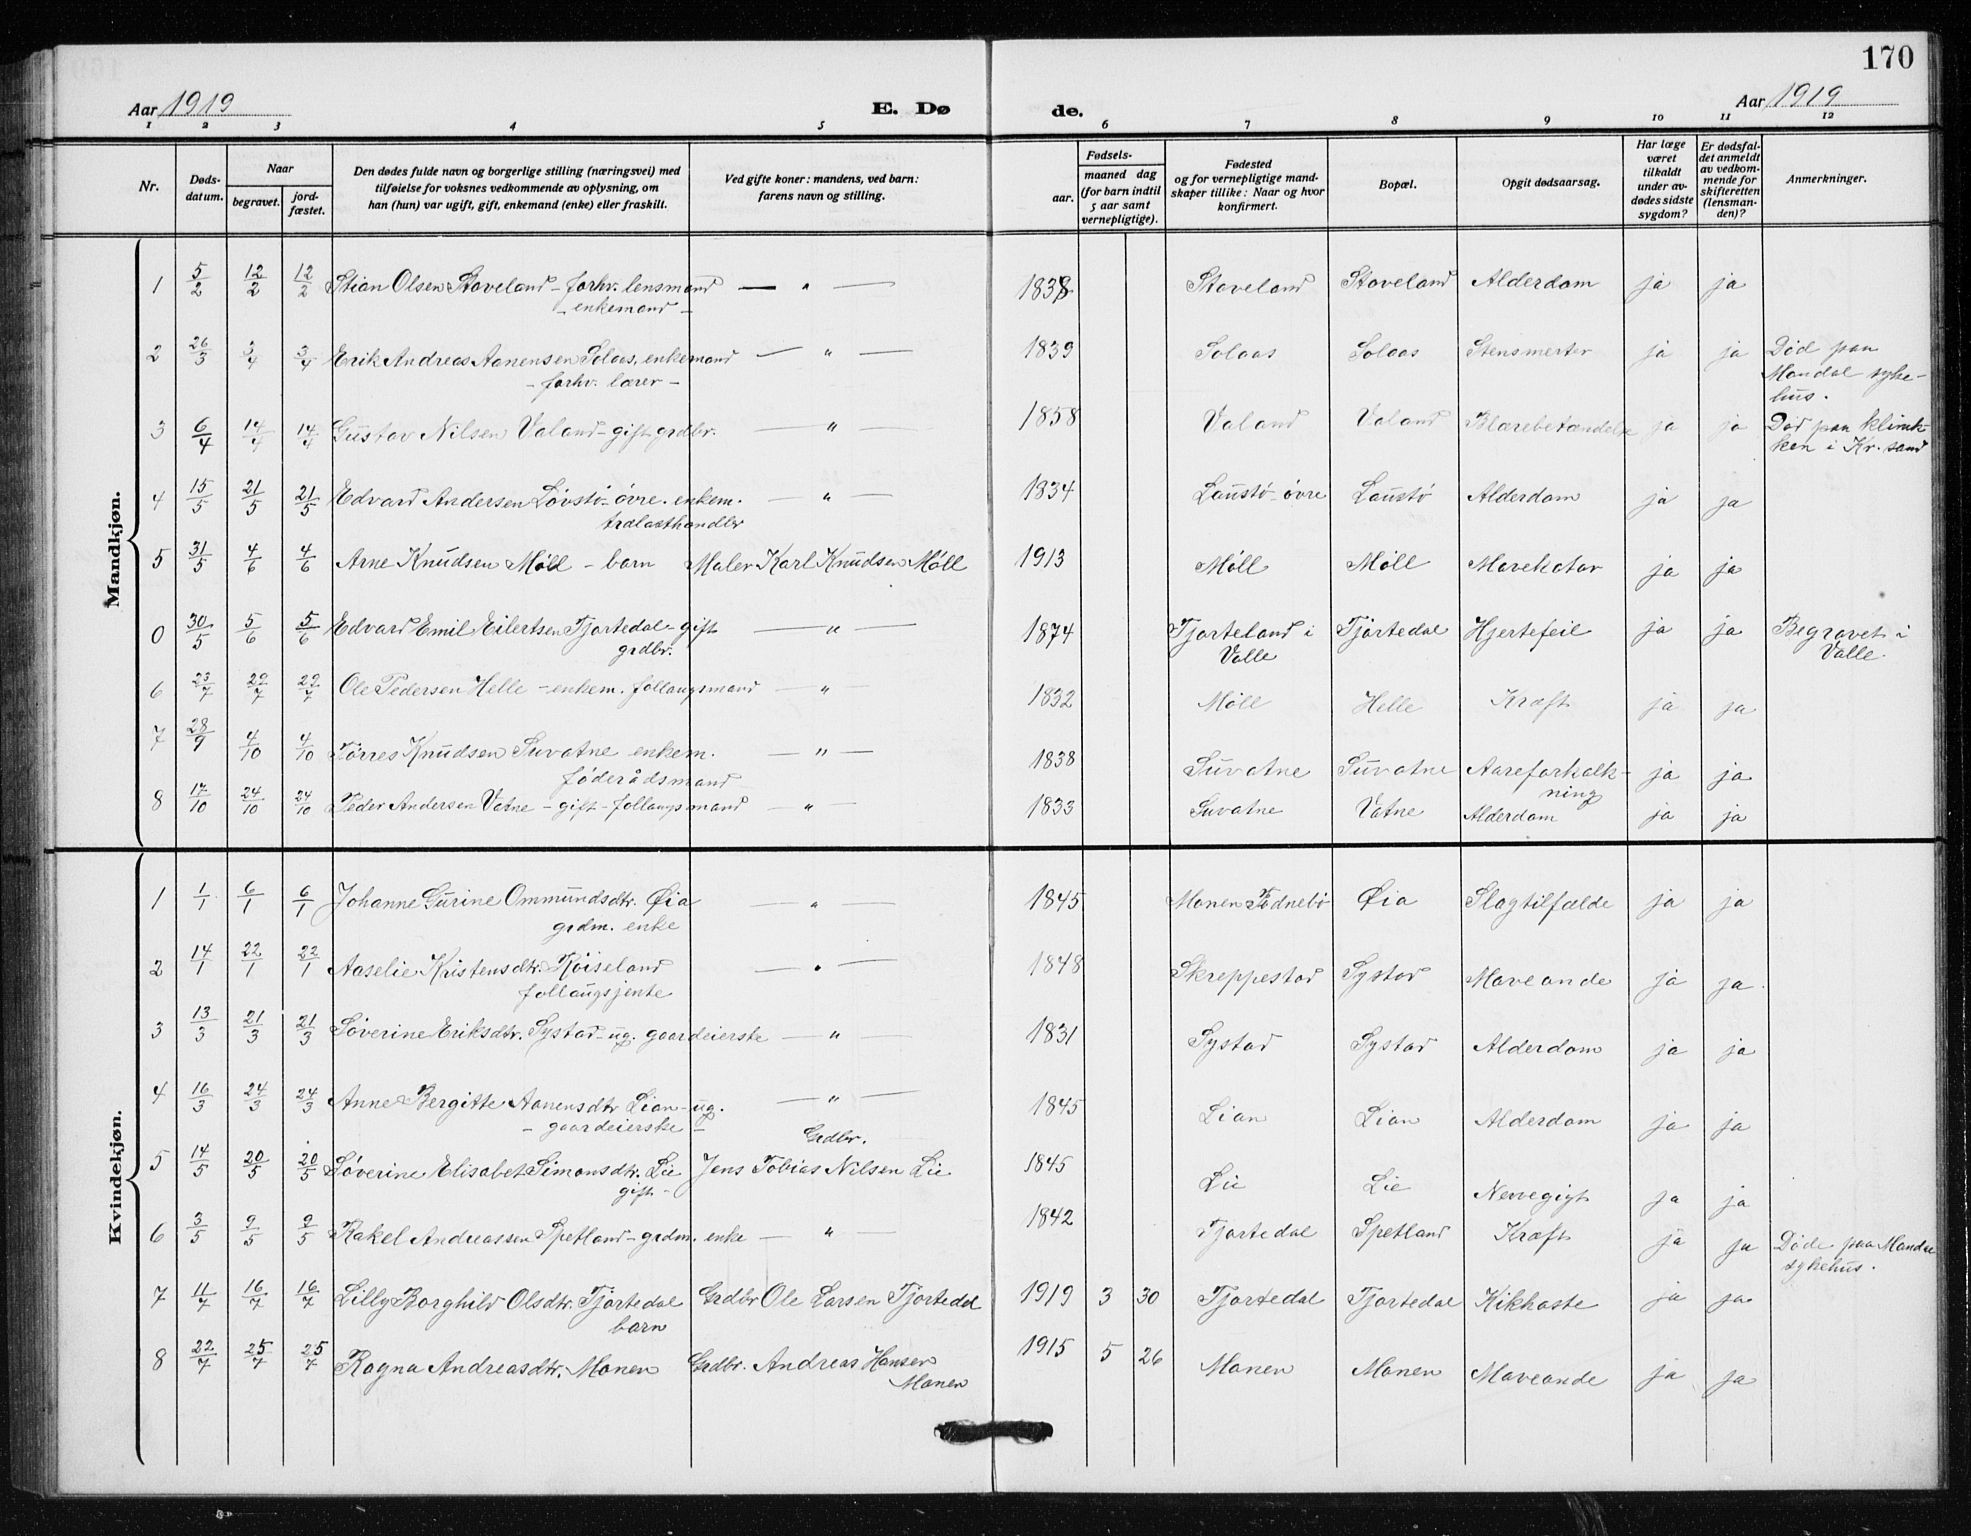 170
Aar 1919 E. Dø de. Aar 1919
1 2 3 4 5 6 7 8 9 10 11 12
Nr. Døds-datum. Naar begravet. jord-fæstet. Den dødes fulde navn og borgerlige stilling (næringsvei) med tilføielse for voksnes vedkommende av oplysning, om han (hun) var ugift, gift, enkemand (enke) eller fraskilt. Ved gifte koner: mandens, ved barn: farens navn og stilling. Fødsels- aar. maaned dag (for barn indtil 5 aar samt vernepligtige). Fødested og for vernepligtige mandskaper tillike: Naar og hvor konfirmert. Bopæl. Opgit dødsaarsag. Har læge været tilkaldt under avdødes sidste sygdom? Er dødsfaldet anmeldt av vedkommende for skifteretten (lensmanden)? Anmerkninger.
Mandkjøn.
1 5/2 12/2 12/2 Stian Olsen Stoveland - forhv. lensmand — " — 1838 Stoveland Stoveland Alderdom ja ja
- enkemand -
2 26/3 3/4 3/4 Erik Andreas Aanensen Solaas, enkemand — " — 1839 Solaas Solaas Stensmerter ja ja Død paa
- forhv. lærer - Mandal syke-
hus.
3 6/4 14/4 14/4 Gustav Nilsen Valand - gift grdbr. — " — 1858 Valand Valand Blærebetændelse ja ja Død paa klinik-
ken i Kr. sand
4 15/5 21/5 21/5 Edvard Andersen Lovstø - øvre. enkem. — " — 1834 Laustø - øvre Laustø Alderdom ja ja
trælasthandlr
5 31/5 4/6 4/6 Arne Knudsen Møll - barn Maler Karl Knudsen Møll 1913 Møll Møll Mavekatar ja ja
0 30/5 5/6 5/6 Edvard Emil Eilertsen Tjortedal - gift — " — 1874 Tjorteland i Tjortedal Hjertefeil ja ja Begravet i
grdbr. Valle Valle.
6 23/7 29/7 29/7 Ole Pedersen Helle - enkem. follaugsmand — " 1832 Møll Helle Kræft ja ja
7 28/9 4/10 4/10 Tørres Knudsen Suvatne enkem. — " — 1838 Suvatne Suvatne Aareforkalk- ja ja
føderådsmand ning
8 17/10 24/10 24/10 Peder Andersen Vatne - gift - follaugsmand — " — 1833 Suvatne Vatne Alderdom ja ja
Kvindekjøn.
1 1/1 6/1 6/1 Johanne Gurine Ommundsdtr. Øia — " — 1845 Monen Fodnebø Øia Slagtilfælde ja ja
grdm. enke
2 14/1 22/1 22/1 Aaselie Kristensdtr. Røiseland — " — 1848 Skreppestad Systad Maveonde ja ja
follaugsjente
3 13/3 21/3 21/3 Søverine Eriksdtr. Systad - ug. gaardeierske — " — 1831 Systad Systad Alderdom ja ja
4 16/3 24/3 24/3 Anne Bergitte Aanensdtr Lian - ug. — " — 1845 Lian Lian Alderdom ja ja
- gaardeierske -
Grdbr.
5 14/5 20/5 20/5 Søverine Elisabet Simonsdtr. Lie Jens Tobias Nilsen Lie 1845 Lie Lie Nervegigt ja ja
gift -
6 3/5 9/5 9/5 Rakel Andreassen Spetland - grdm. enke — " — 1842 Tjortedal Spetland Kræft ja ja Døde paa Mandal
sykehus.
7 11/7 16/7 16/7 Lilly Borghild Olsdtr. Tjortedal Grdbr Ole Larsen Tjortedal 1919 3 30 Tjortedal Tjortedal Kikhoste ja ja
barn
8 22/7 25/7 25/7 Ragna Andreasdtr. Monen Grdbr. Andreas Hansen 1915 5 26 Monen Monen Maveonde ja ja
Monen